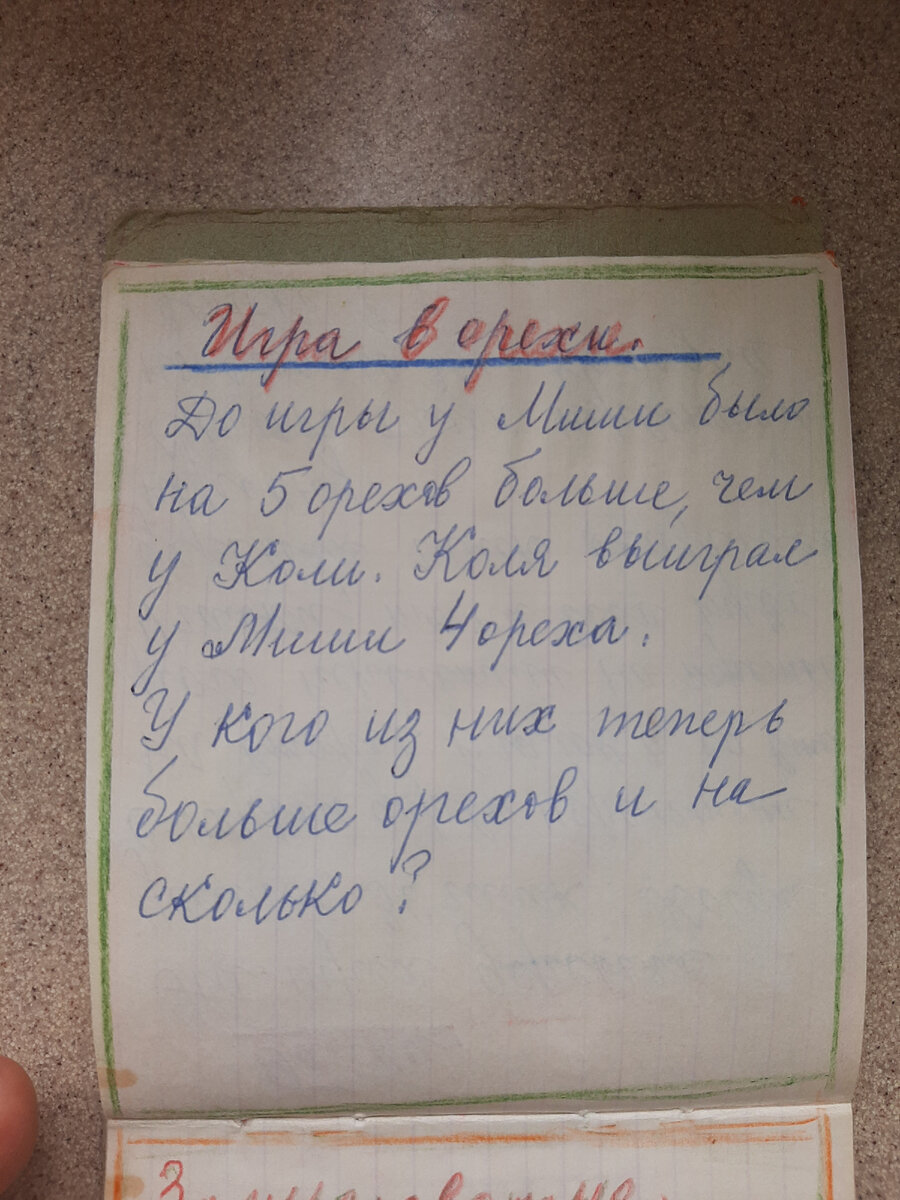 Игра в орехи.
До игры у Миши было
на 5 орехов больше, чем
у Коли. Коля выиграл
у Миши 4 ореха.
У кого из них теперь
больше орехов и на
сколько?